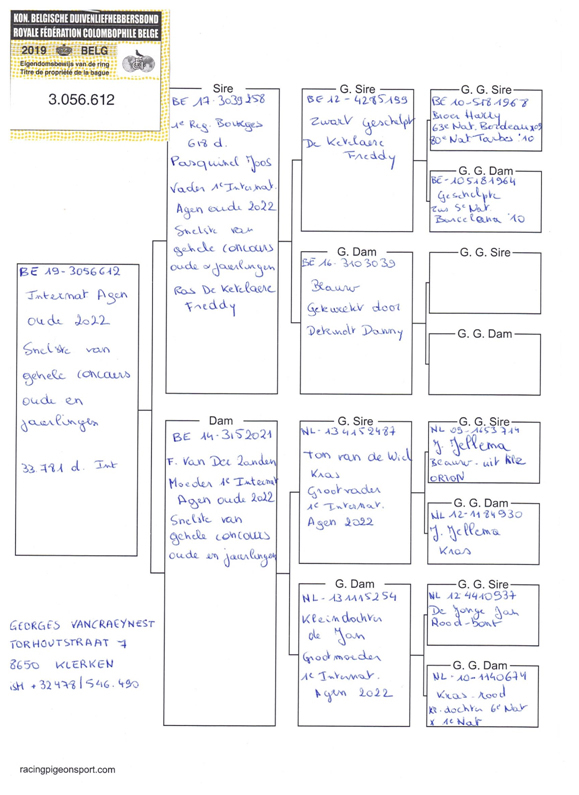 KON. BELGISCHE DUIVENLIEFHEBBERSBOND
ROYALE FÉDÉRATION COLOMBOPHILE BELGE
2019 BELG
Eigendomsbewijs van de ring
Titre de propriété de la bague
3.056.612
BE 19-3056612
Internat Agen
oude 2022
Snelste van
gehele concours
oude en
jaerlingen
33 781 d. Int
Sire
BE 17-3039258
1e Reg. Bourges
618 d.
Pasquinel Joos
Vader 1e Internat.
Agen oude 2022
Snelste van
gehele concours
oude en jaerlingen
Ras De Ketelaere
Freddy
Dam
BE 14-3152021
F. Van Der Zanden
Moeder 1e Internat
Agen oude 2022
Snelste van
gehele concours
oude en jaerlingen
G. Sire
BE 12-4285199
Zwart Geschelpt
De Ketelaere
Freddy
G. Dam
BE 16-3103039
Blauw
Gekweekt door
Danny
G. Sire
NL-13 4152487
Ton van de Wiel
Kras
Grootvader
1e Internat.
Agen 2022
G. Dam
NL-131115254
Kleindochter
de Jan
Grootmoeder
1e Internat.
Agen 2022
G. G. Sire
BE 10-5181968
Broer Harry
63e Nat. Bordeaux
80e Nat Tarbes '10
G. G. Dam
BE-105181964
Geschelpte
zus 5e Nat
Barcelona '10
G. G. Sire
G. G. Dam
G. G. Sire
NL 09-1653714
J. Jellema
Blauw-uit
ORION
G. G. Dam
NL 12-1184930
J. Jellema
Kras
G. G. Sire
NL 12 4410937
De Jonge Jan
Rood-Bont
G. G. Dam
NL-10-1140674
Kras-rood
kl. dochter 6e Nat
x 1e Nat
GEORGES VANCRAEYNEST
TORHOUTSTRAAT 7
8650 KLERKEN
+32478/546.490
racingpigeonsport.com